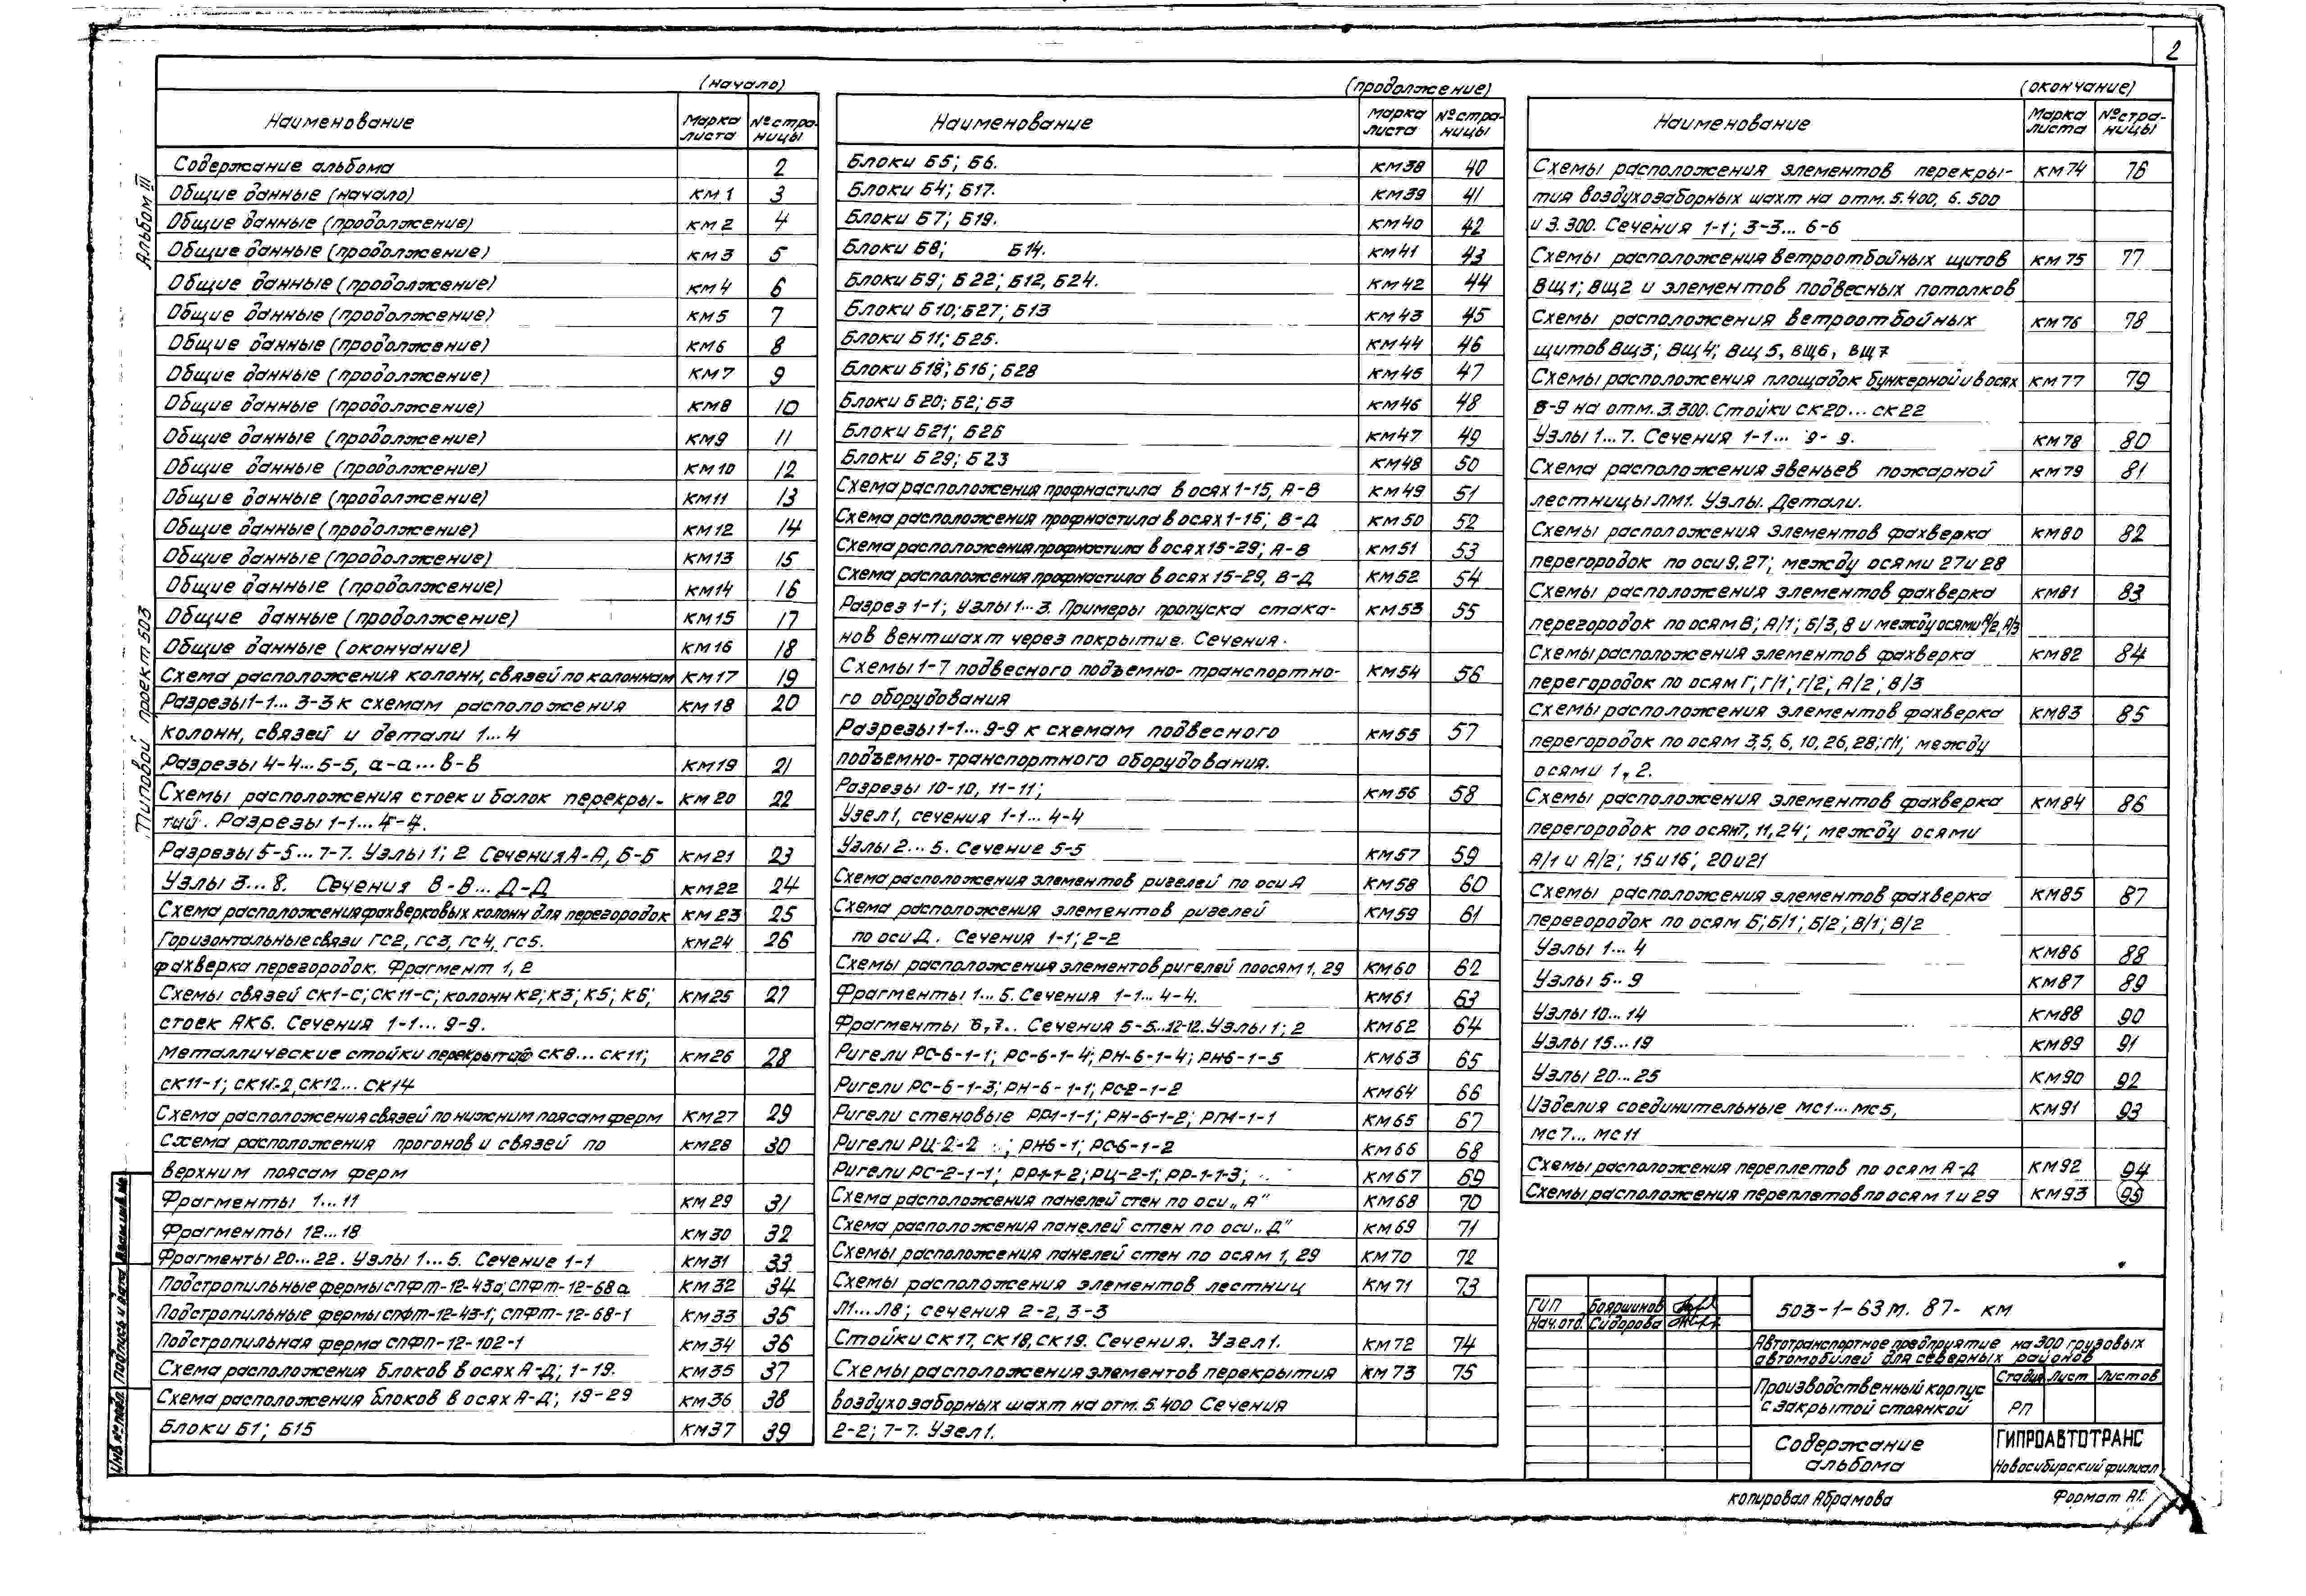 2
(начало)
Наименование Марка листа № стра-ницы
Содержание альбома 2
Общие данные (начало) КМ 1 3
Общие данные (продолжение) КМ 2 4
Общие данные (продолжение) КМ 3 5
Общие данные (продолжение) КМ 4 6
Общие данные (продолжение) КМ5 7
Общие данные (продолжение) КМ6 8
Общие данные (продолжение) КМ7 9
Общие данные (продолжение) КМ8 10
Общие данные (продолжение) КМ9 11
Общие данные (продолжение) КМ10 12
Общие данные (продолжение) КМ11 13
Общие данные (продолжение) КМ12 14
Общие данные (продолжение) КМ13 15
Общие данные (продолжение) КМ14 16
Общие данные (продолжение) КМ15 17
Общие данные (окончание) КМ16 18
Схема расположения колонн, связей по колоннам КМ17 19
Разрезы 1-1... 3-3 к схемам расположения КМ18 20
колонн, связей и детали 1...4
Разрезы 4-4...5-5, а-а...в-в КМ19 21
Схемы расположения стоек и балок перекры- КМ20 22
тий. Разрезы 1-1...4-4.
Разрезы 5-5...7-7. Узлы 1; 2 Сечения А-А, Б-Б КМ21 23
Узлы 3...8. Сечения В-В...Д-Д КМ22 24
Схема расположения фахверковых колонн для перегородок КМ 23 25
Горизонтальные связи ГС2, ГС3, ГС4, ГС5. КМ24 26
фахверка перегородок. Фрагмент 1, 2
Схемы связей СК1-С; СК11-С; колонн К2; К3; К5; К6; КМ25 27
стоек АК6. Сечения 1-1... 9-9.
Металлические стойки перекрытий СК8...СК11; КМ26 28
СК11-1; СК11-2, СК12...СК14
Схема расположения связей по нижним поясам ферм КМ27 29
Схема расположения прогонов и связей по КМ28 30
верхним поясам ферм
Фрагменты 1...11 КМ29 31
Фрагменты 12...18 КМ30 32
Фрагменты 20...22. Узлы 1...5. Сечение 1-1 КМ31 33
Подстропильные фермы СПФТ-12-43а; СПФТ-12-68а КМ32 34
Подстропильные фермы СПФТ-12-43-1; СПФТ-12-68-1 КМ33 35
Подстропильная ферма СПФП-12-102-1 КМ34 36
Схема расположения блоков в осях А-Д; 1-19. КМ35 37
Схема расположения блоков в осях А-Д; 19-29 КМ36 38
Блоки Б1; Б15 КМ37 39
(продолжение)
Наименование Марка листа № стра-ницы
Блоки Б5; Б6. КМ38 40
Блоки Б4; Б17. КМ39 41
Блоки Б7; Б19. КМ40 42
Блоки Б8; Б14. КМ41 43
Блоки Б9; Б22; Б12, Б24. КМ42 44
Блоки Б10; Б27; Б13 КМ43 45
Блоки Б11; Б25. КМ44 46
Блоки Б18; Б16; Б28 КМ45 47
Блоки Б20; Б2; Б3 КМ46 48
Блоки Б21; Б26 КМ47 49
Блоки Б29; Б23 КМ48 50
Схема расположения профнастила в осях 1-15, А-В КМ49 51
Схема расположения профнастила в осях 1-15; В-Д КМ50 52
Схема расположения профнастила в осях 15-29; А-В КМ51 53
Схема расположения профнастила в осях 15-29, В-Д КМ52 54
Разрез 1-1; Узлы 1...3. Примеры пропуска стака- КМ53 55
нов вентшахт через покрытие. Сечения.
Схемы 1-7 подвесного подъемно-транспортно- КМ54 56
го оборудования
Разрезы 1-1... 9-9 к схемам подвесного КМ55 57
подъемно-транспортного оборудования.
Разрезы 10-10, 11-11; КМ56 58
Узел 1, сечения 1-1... 4-4
Узлы 2...5. Сечение 5-5 КМ57 59
Схема расположения элементов ригелей по оси А КМ58 60
Схема расположения элементов ригелей КМ59 61
по оси Д. Сечения 1-1; 2-2
Схемы расположения элементов ригелей по осям 1, 29 КМ60 62
Фрагменты 1...5. Сечения 1-1...4-4. КМ61 63
Фрагменты 6, 7.. Сечения 5-5...12-12. Узлы 1; 2 КМ62 64
Ригели РС-6-1-1; РС-6-1-4; РН-6-1-4; РН6-1-5 КМ63 65
Ригели РС-6-1-3; РН-6-1-1; РС-2-1-2 КМ64 66
Ригели стеновые РР1-1-1; РН-6-1-2; РП1-1-1 КМ65 67
Ригели РЦ-2-2; РН6-1; РС-6-1-2 КМ66 68
Ригели РС-2-1-1; РР1-1-2; РЦ-2-1; РР-1-1-3; КМ67 69
Схема расположения панелей стен по оси „А" КМ68 70
Схема расположения панелей стен по оси „Д" КМ69 71
Схемы расположения панелей стен по осям 1, 29 КМ70 72
Схемы расположения элементов лестниц КМ71 73
Л1...Л8; сечения 2-2, 3-3
Стойки СК17, СК18, СК19. Сечения. Узел 1. КМ72 74
Схемы расположения элементов перекрытия КМ 73 75
воздухозаборных шахт на отм. 5.400 Сечения
2-2; 7-7. Узел 1.
(окончание)
Наименование Марка листа № стра-ницы
Схемы расположения элементов перекры- КМ74 76
тия воздухозаборных шахт на отм. 5.400, 6.500
и 3.300. Сечения 1-1; 3-3... 6-6
Схемы расположения ветроотбойных щитов КМ 75 77
ВЩ1; ВЩ2 и элементов подвесных потолков
Схемы расположения ветроотбойных КМ76 78
щитов ВЩ3; ВЩ4; ВЩ5, ВЩ6, ВЩ7
Схемы расположения площадок бункерной и в осях КМ77 79
8-9 на отм. 3.300. Стойки СК20...СК22
Узлы 1...7. Сечения 1-1... 9-9. КМ78 80
Схема расположения звеньев пожарной КМ79 81
лестницы ЛМ1. Узлы. Детали.
Схемы расположения элементов фахверка КМ80 82
перегородок по оси 9, 27; между осями 27 и 28
Схемы расположения элементов фахверка КМ81 83
перегородок по осям В; А/1; Б/3, В и между осями А/2, А/3
Схемы расположения элементов фахверка КМ82 84
перегородок по осям Г; Г/1; Г/2; А/2; В/3
Схемы расположения элементов фахверка КМ83 85
перегородок по осям 3, 5, 6, 10, 26, 28; Г/1; между
осями 1, 2.
Схемы расположения элементов фахверка КМ84 86
перегородок по осям 7, 11, 24; между осями
А/1 и А/2; 15 и 16; 20 и 21
Схемы расположения элементов фахверка КМ85 87
перегородок по осям Б; Б/1; Б/2; В/1; В/2
Узлы 1...4 КМ86 88
Узлы 5..9 КМ87 89
Узлы 10...14 КМ88 90
Узлы 15...19 КМ89 91
Узлы 20...25 КМ90 92
Изделия соединительные МС1...МС5, КМ91 93
МС7... МС11
Схемы расположения переплетов по осям А-Д КМ92 94
Схемы расположения переплетов по осям 1 и 29 КМ93 95
Альбом III
Типовой проект 503
Взам.инв.№
Подпись и дата
Инв.№ подл.
ГИП Бояршинов
Нач.отд. Сидорова
503-1-63 м. 87- КМ
Автотранспортное предприятие на 300 грузовых
автомобилей для северных районов
Производственный корпус
с закрытой стоянкой
Стадия Лист Листов
РП
Содержание
альбома
ГИПРОАВТОТРАНС
Новосибирский филиал
копировал Абрамова
Формат А2